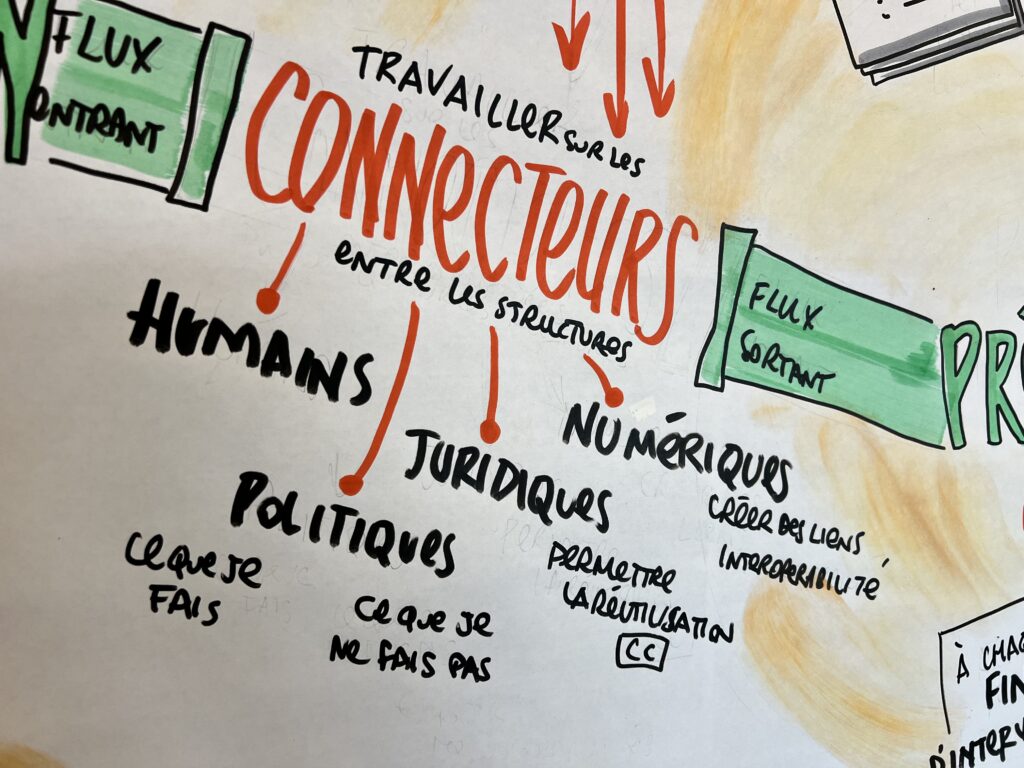 FLUX
ENTRANT
TRAVAILLER SUR LES
CONNECTEURS
ENTRE LES STRUCTURES
FLUX
SORTANT
HUMAINS
POLITIQUES
CE QUE JE
FAIS
CE QUE JE
NE FAIS PAS
JURIDIQUES
PERMETTRE
LA RÉUTILISATION
CC
NUMÉRIQUES
CRÉER DES LIENS
INTEROPERIBILITÉ
À
FIN